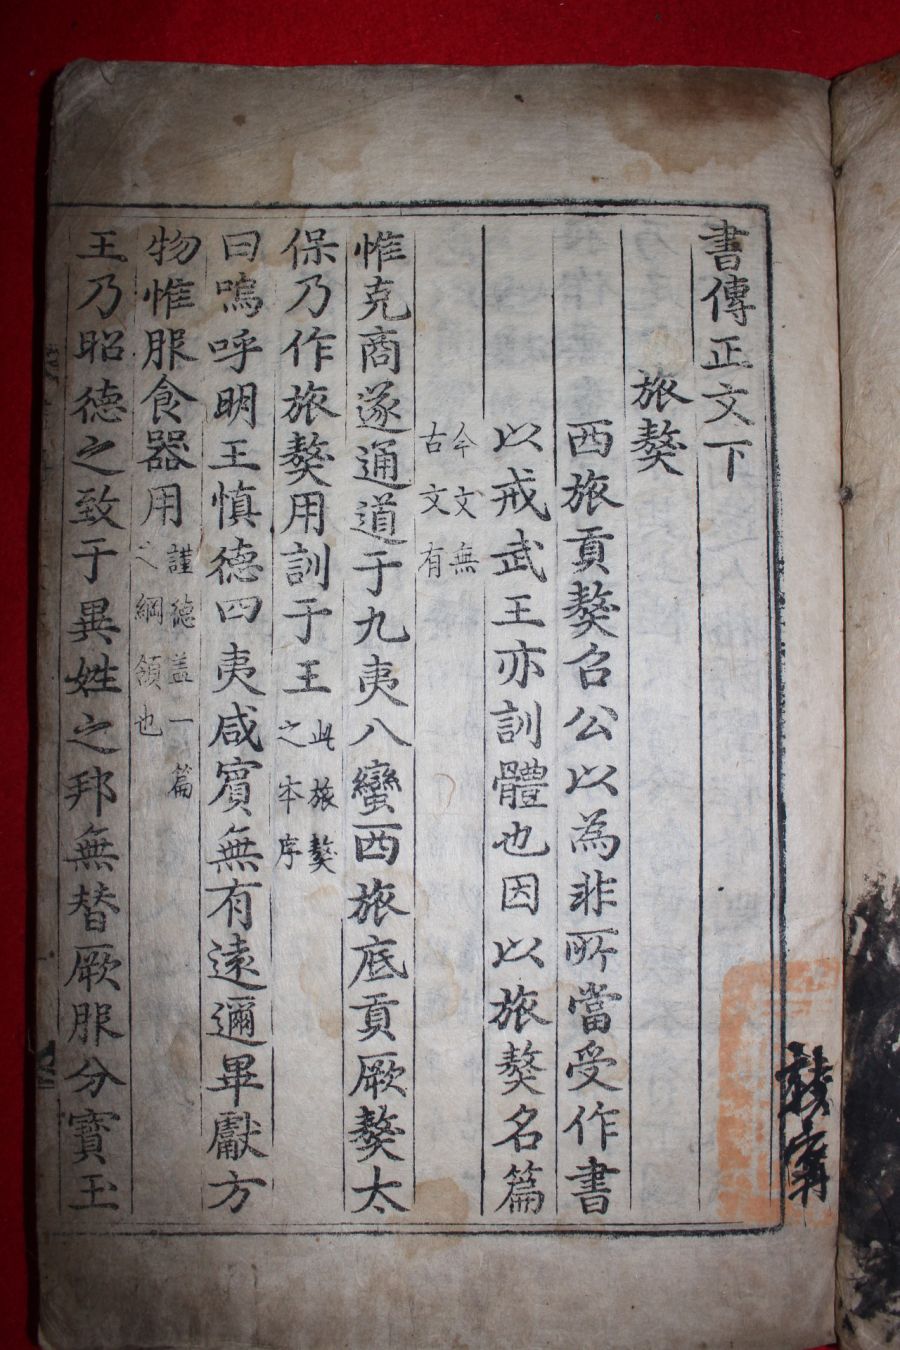 書傳正文下
旅獒
西旅貢獒召公以為非所當受作書
以戒武王亦訓體也因以旅獒名篇
今文無
古文有
惟克商遂通道于九夷八蠻西旅底貢厥獒太
保乃作旅獒用訓于王
此旅獒
之本序
曰嗚呼明王慎德四夷咸賓無有遠邇畢獻方
物惟服食器用
謹德盖一篇
之綱領也
王乃昭德之致于異姓之邦無替厥服分寶玉